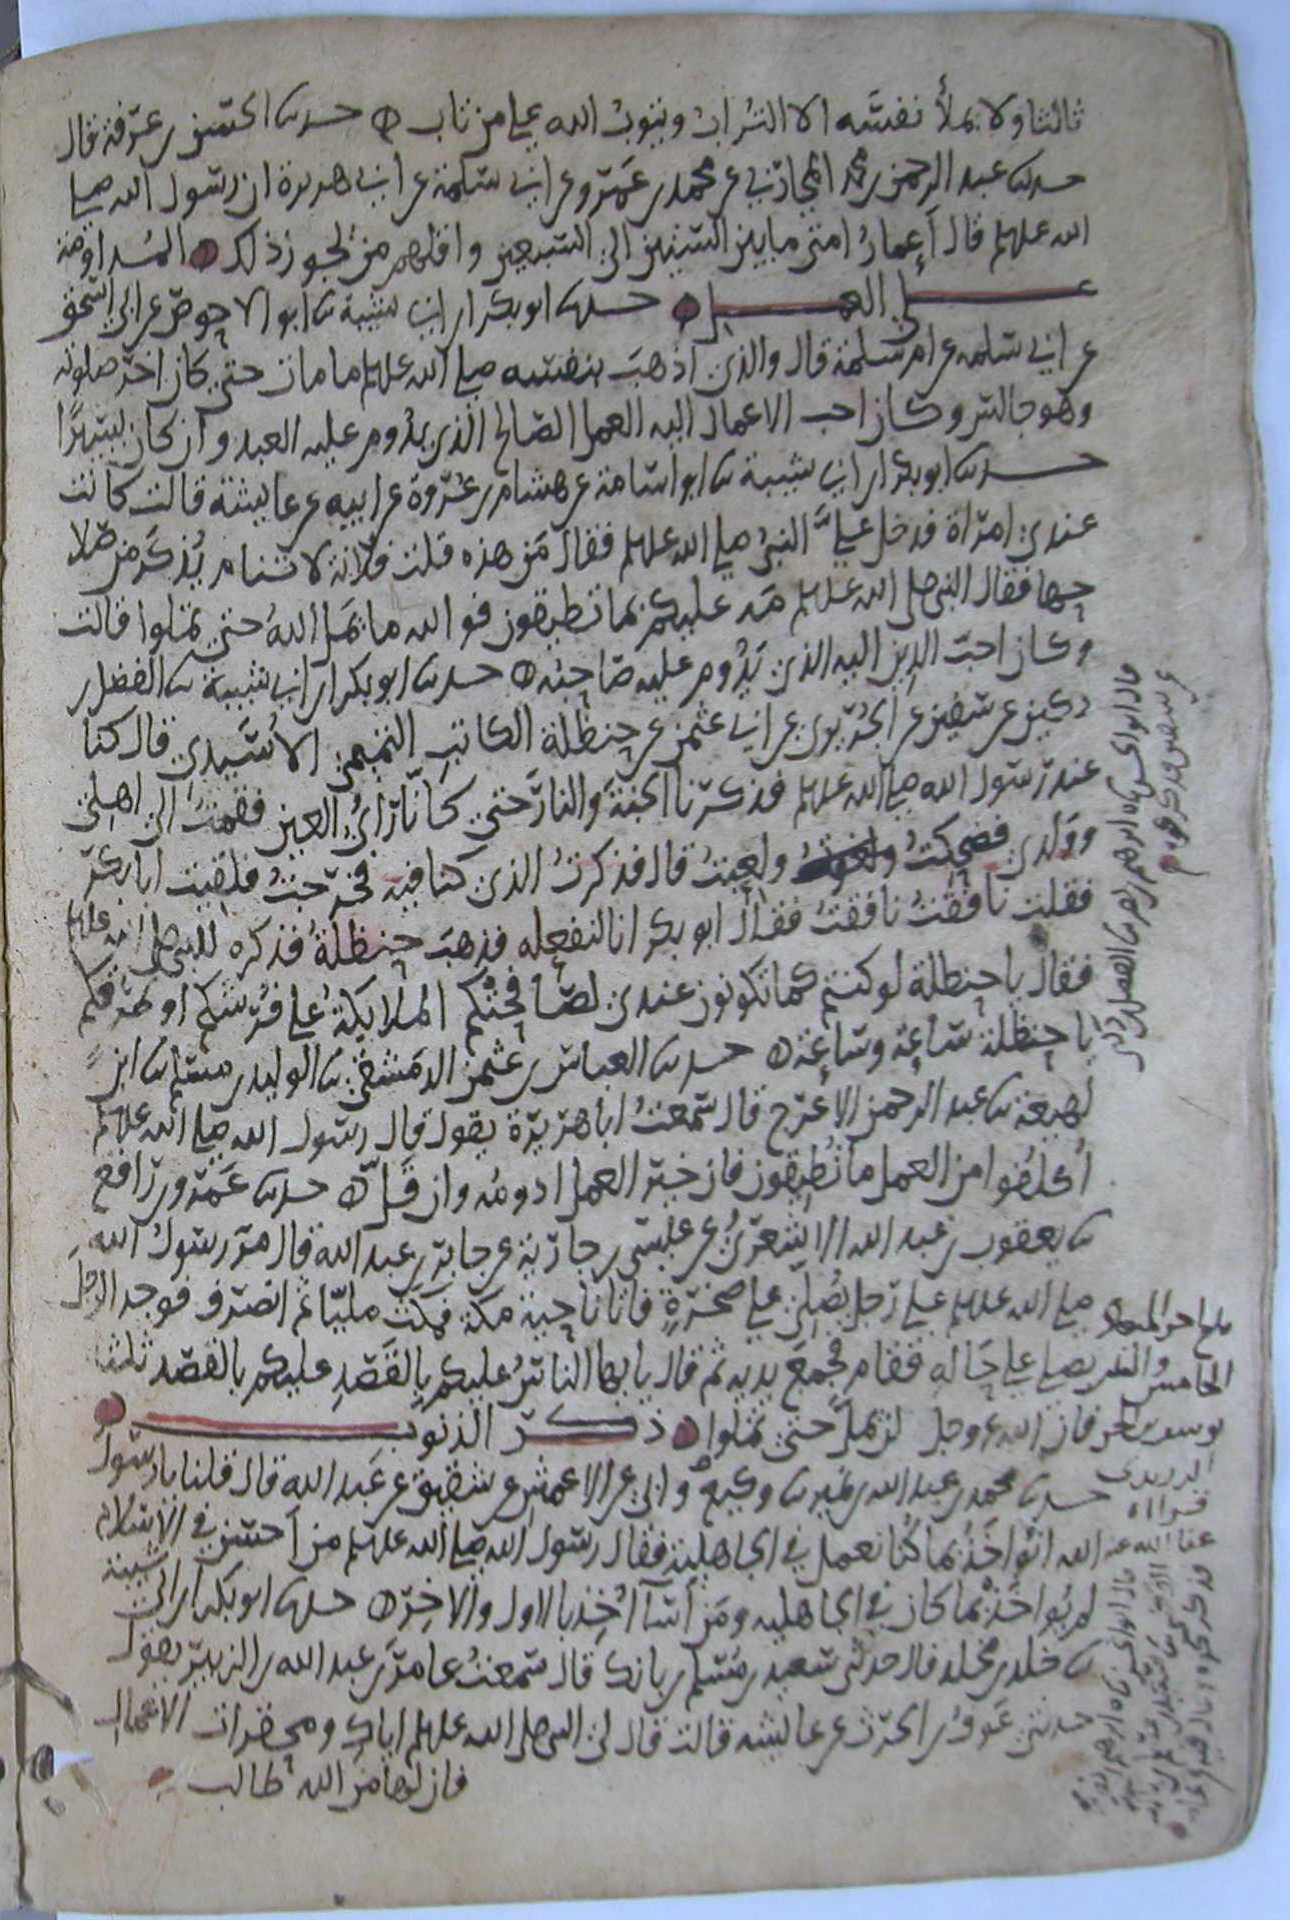 ثالثا ولا يملأ نفسه الا التراب ويتوب الله على من تاب ه حدثنا الحسن بن عرفة قال
حدثنا عبد الرحمن بن محمد المحاربي عن محمد بن عمرو عن ابي سلمة عن ابي هريرة ان رسول الله صلى
الله عليه وسلم قال أعمار امتي ما بين الستين الى السبعين واقلهم من يجوز ذلك ه المداومة
على العمل ه حدثنا ابو بكر ابن ابي شيبة ثنا ابو الاحوص عن ابي اسحق
عن ابي سلمه عن ام سلمة قال والذي اذهب بنفسه صلى الله عليه وسلم ما مات حتى كان اخر صلوته
وهو جالس وكان احب الاعمال اليه العمل الصالح الذي يدوم عليه العبد وان كان يسيرًا
حدثنا ابو بكر ابن ابي شيبة ثنا ابو اسامة عن هشام بن عروة عن ابيه عن عايشة قالت كانت
عندي امراة فدخل عليَّ النبي صلى الله عليه وسلم فقال من هذه قلت فلانة لا تنام يذكر من صلا
تها فقال النبي صلى الله عليه وسلم مه عليكم بما تطيقون فوالله ما يمل الله حتى تملوا قالت
وكان احب الدين اليه الذي يدوم عليه صاحبه ه حدثنا ابو بكر ابن ابي شيبة ثنا الفضل بن
دكين عن سفين عن الجريري عن ابي عثمن عن حنظلة الكاتب التميمي الأسيدي قال كنا
عند رسول الله صلى الله عليه وسلم فذكرنا الجنة والنار حتى كانا رأي العين فقمت الى اهلي
وولدي فضحكت ولعبت قال فذكرت الذي كنا فيه فخرجت فلقيت ابا بكر
فقلت نافقت نافقت فقال ابو بكر انا لنفعله فذهب حنظلة فذكره للنبي صلى الله عليه وسلم
فقال يا حنظلة لو كنتم كما تكونون عندي لصافحتكم الملايكة على فرشكم او طرقكم
يا حنظلة ساعة وساعة ه حدثنا العباس بن عثمن الدمشقي ثنا الوليد بن مسلم ثنا ابن
لهيعة ثنا عبد الرحمن الاعرج قال سمعت ابا هريرة يقول قال رسول الله صلى الله عليه وسلم
أكلفوا من العمل ما تطيقون فان خير العمل ادومه وان قل ه حدثنا عمرو بن رافع
ثنا يعقوب بن عبد الله الاشعري عن عيسى بن جارية عن جابر بن عبد الله قال مر رسول الله
صلى الله عليه وسلم على رجل يصلي على صخرة فاتا ناحية مكة فمكث مليا ثم انصرف فوجد الرجل
يصلي على حاله فقام فجمع يديه ثم قال يا يها الناس عليكم بالقصد عليكم بالقصد ثلثا
فان الله عز وجل لن يمل حتى تملوا ه ذكر الذنوب
حدثنا محمد بن عبد الله بن نمير ثنا وكيع وابي عن الاعمش عن شقيق عن عبد الله قال قلنا يا رسول
الله انؤاخذ بما كنا نعمل في الجاهلية فقال رسول الله صلى الله عليه وسلم من احسن في الاسلام
لم يؤاخذ بما كان في الجاهلية ومن أسآ أُخذ بالاول والاخر ه حدثنا ابو بكر ابن ابي شيبة
ثنا خلد بن مخلد قال حدثني سعيد بن مسلم بن بانك قال سمعت عامر بن عبد الله بن الزبير يقول
حدثني عوف بن الحرث عن عايشه قالت قال لي النبي صلى الله عليه وسلم اياك ومحقرات الاعمال
فان لها من الله طالب